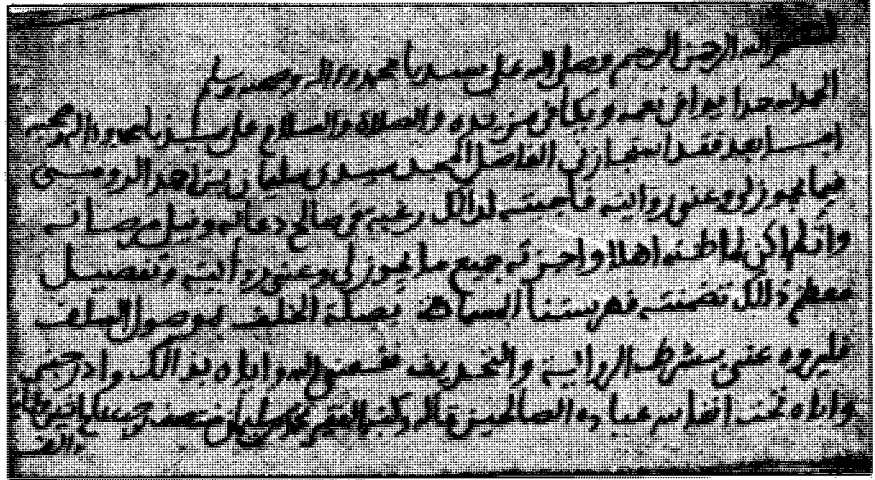 بسم الله الرحمن الرحيم وصلى الله على سيدنا محمد وءاله وصحبه وسلم
الحمد لله حمدا يوافي نعمه ويكافئ مزيده والصلاة والسلام على سيدنا محمد وءاله وصحبه
امـــا بعد فقد استجازني الفاضل المجــد سيدي سليمان بن احمد الرودسـي
فيما يجوز لي وعني روايته فاجبته لذالك رغبة في صالح دعائه ونيل مرضاته
وان لم اكن لما ظنه اهلا واجزته جميع ما يجوز لي وعني روايته وتفصيــل
معظم ذالك تضمنته فهرستنا المسماة بصلة الخلف بموصول السلف
فليروه عني بشرط الرواية والتحديث نفعني الله واياه بذالك وادرجني
واياه تحت انفاس عباده الصالحين قاله وكتبه الفقير محمد بن سليمان منتصف